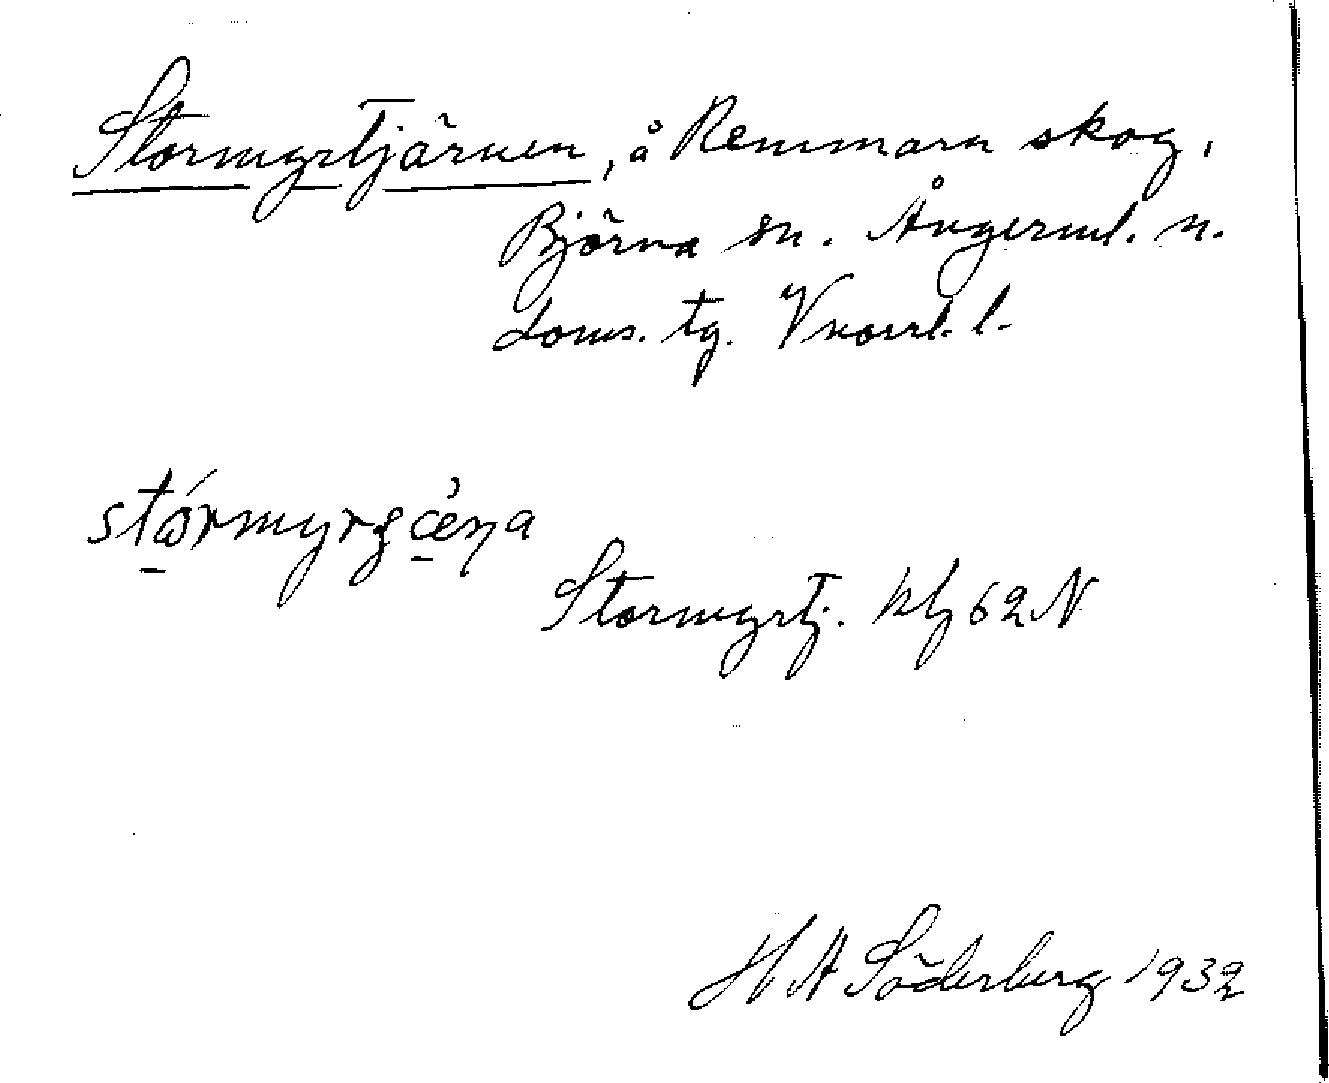 Stormyrtjärnen, å Remmarn skog,
Björna sn. Ångerml. n.
doms. tg. Vnorrl. l.
stórmyrsc̀éṇa
Stormyrtj. klj 62 N
H A Söderberg 1932